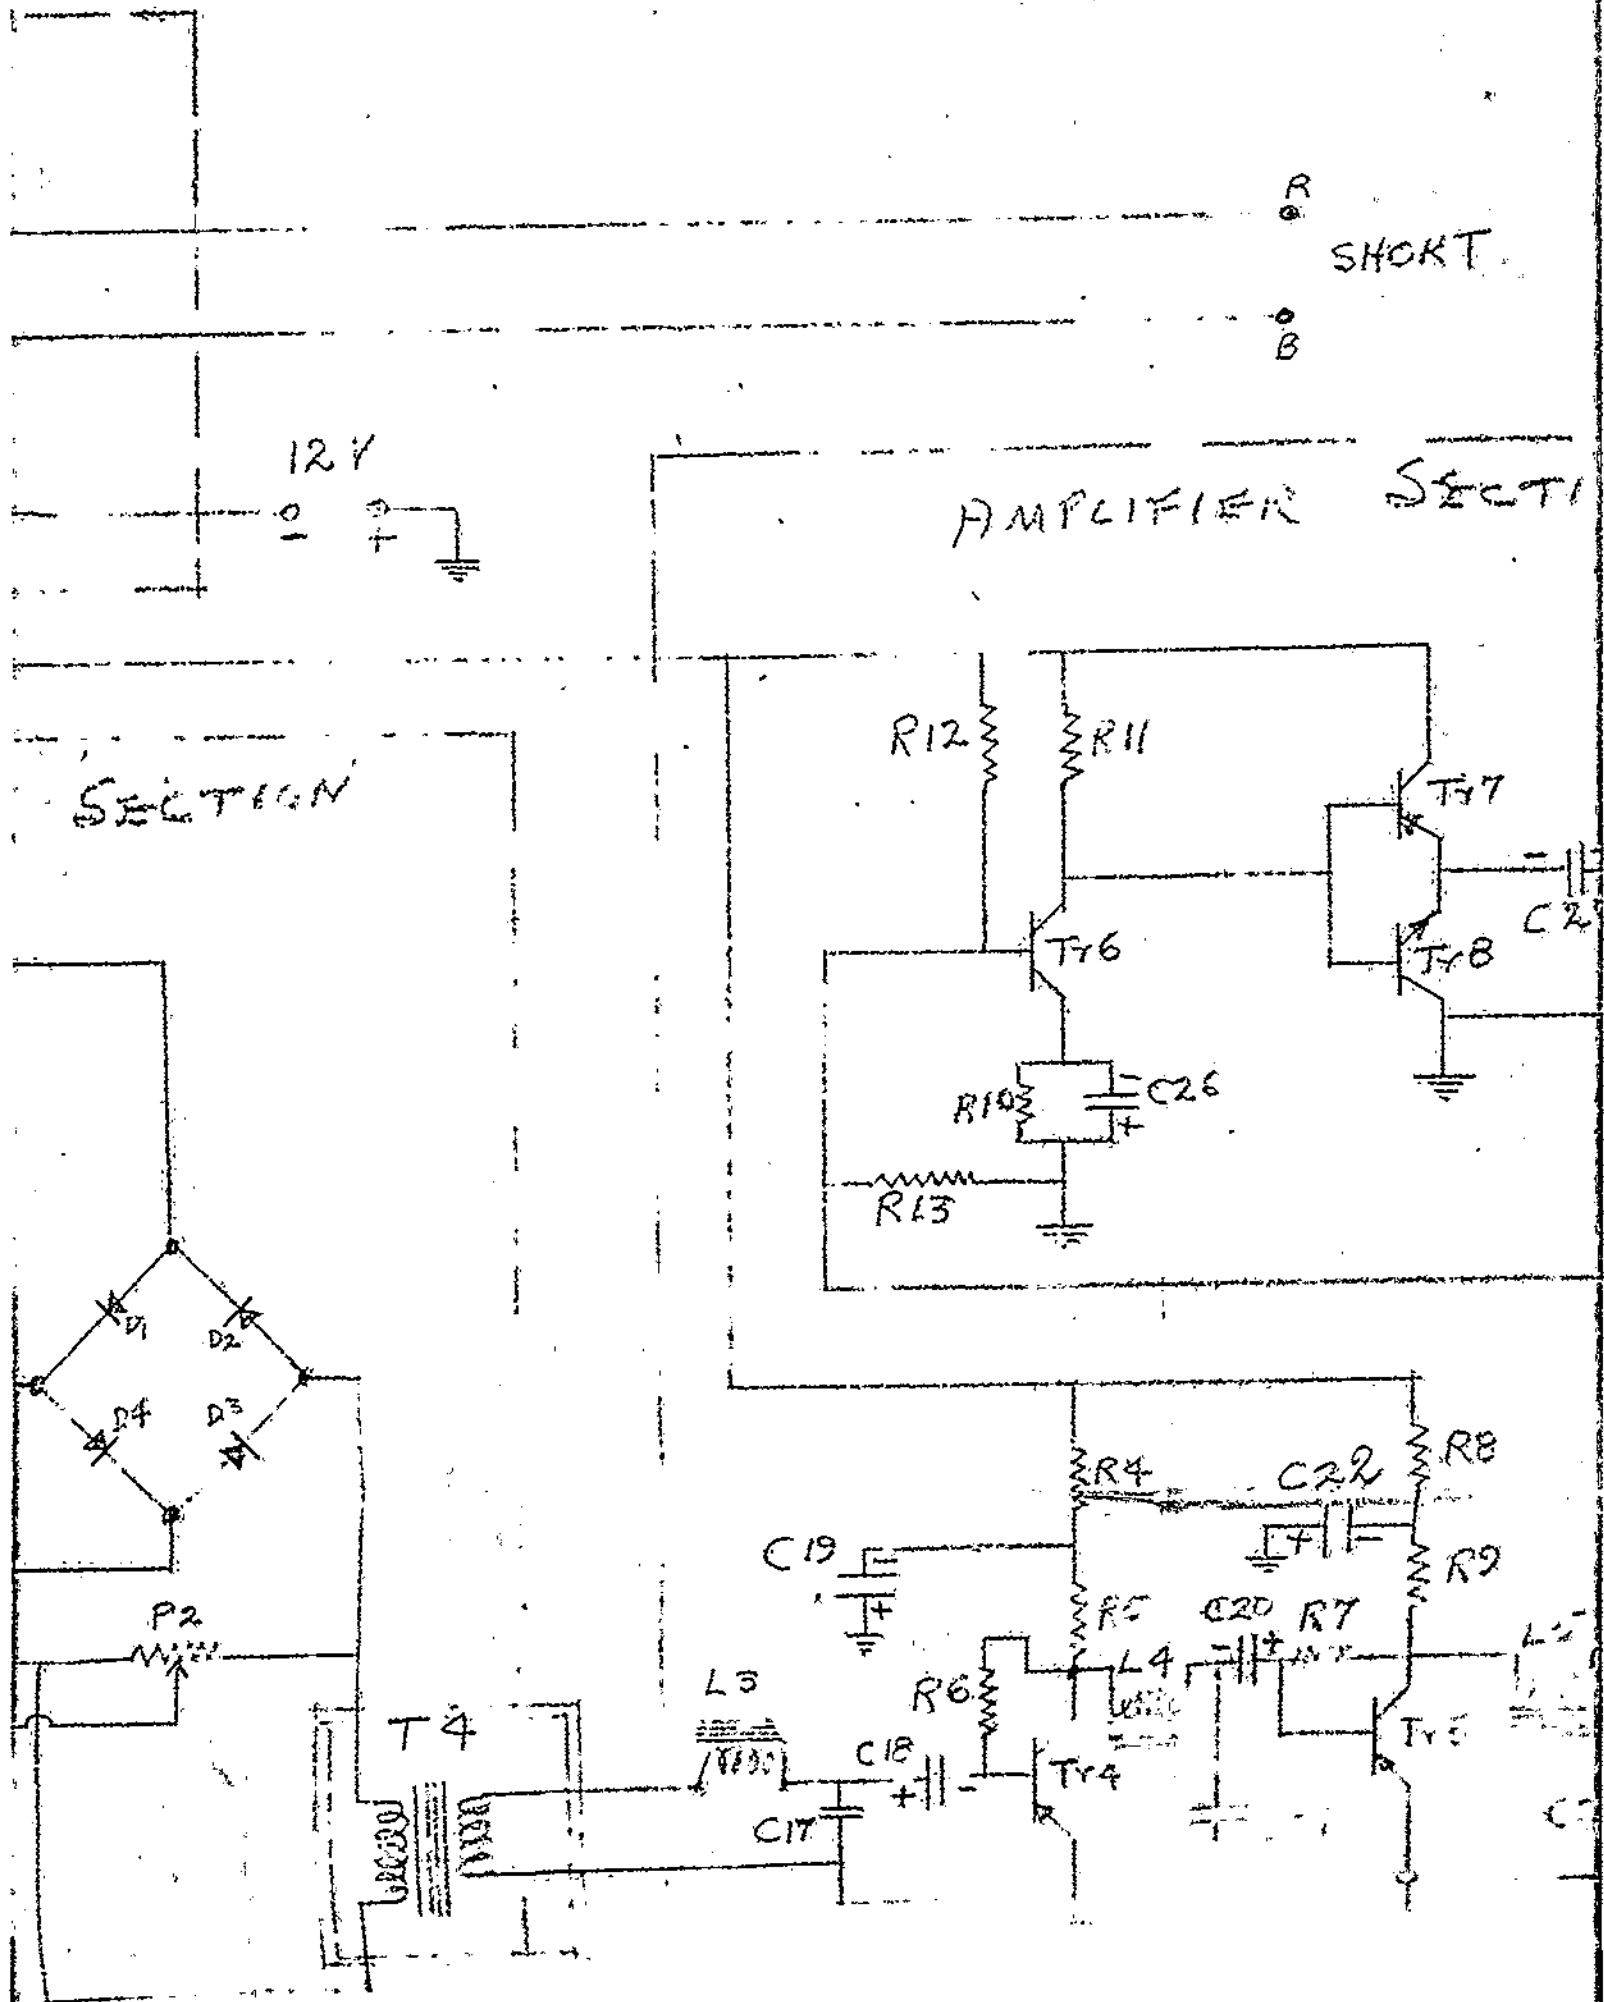 R
SHORT
B
12V
- +
AMPLIFIER SECTI
R12 R11
SECTION
Tr7
-
C2
Tr6 Tr8
R10 - C26
+
R13
D1 D2
D4 D3
R4 C22 R8
+ -
C19 -
+
R9
P2
R5 C20 R7
- +
L4
L3 R6
T4
C18
+ -
Tr4 Tr5
C17